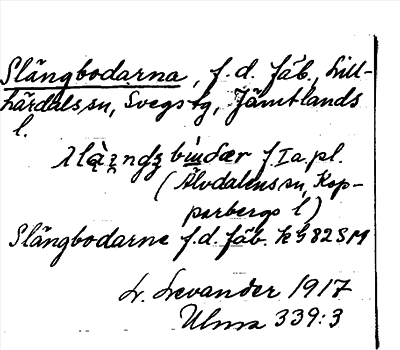 Slängbodarna, f.d. fäb., Lill-
härdals sn, Svegs tg, Jämtlands
l.
f. Ia. pl.
(Älvdalens sn, Kop-
parbergs l)
Slängbodarne f.d. fäb. k 982 SM
L. Levander 1917
Ulma 339:3